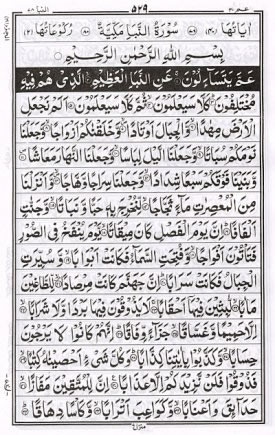 عم ٣٠
٥٢٩
النبا ٧٨
اٰيَاتُهَا (٤٠) سُوْرَةُ النَّبَاِ مَكِّيَّةٌ رُكُوْعَاتُهَا (٢)
بِسْمِ اللّٰهِ الرَّحْمٰنِ الرَّحِيْمِ
عَمَّ يَتَسَآءَلُوْنَ ۚ عَنِ النَّبَاِ الْعَظِيْمِ ۙ الَّذِىْ هُمْ فِيْهِ
مُخْتَلِفُوْنَ ؕ كَلَّا سَيَعْلَمُوْنَ ۙ ثُمَّ كَلَّا سَيَعْلَمُوْنَ اَلَمْ نَجْعَلِ
الْاَرْضَ مِهٰدًا ۙ وَّالْجِبَالَ اَوْتَادًا ۪ وَّخَلَقْنٰكُمْ اَزْوَاجًا ۙ وَّجَعَلْنَا
نَوْمَكُمْ سُبَاتًا ۙ وَّجَعَلْنَا الَّيْلَ لِبَاسًا ۙ وَّجَعَلْنَا النَّهَارَ مَعَاشًا ۪
وَّبَنَيْنَا فَوْقَكُمْ سَبْعًا شِدَادًا ۙ وَّجَعَلْنَا سِرَاجًا وَّهَّاجًا ۪ وَّاَنْزَلْنَا
مِنَ الْمُعْصِرٰتِ مَآءً ثَجَّاجًا ۙ لِّنُخْرِجَ بِهٖ حَبًّا وَّنَبَاتًا ۙ وَّجَنّٰتٍ
اَلْفَافًا ؕ اِنَّ يَوْمَ الْفَصْلِ كَانَ مِيْقَاتًا ۙ يَّوْمَ يُنْفَخُ فِى الصُّوْرِ
فَتَاْتُوْنَ اَفْوَاجًا ۙ وَّفُتِحَتِ السَّمَآءُ فَكَانَتْ اَبْوَابًا ۙ وَّسُيِّرَتِ
الْجِبَالُ فَكَانَتْ سَرَابًا ؕ اِنَّ جَهَنَّمَ كَانَتْ مِرْصَادًا ۪ لِّلطَّاغِيْنَ
مَاٰبًا ۙ لّٰبِثِيْنَ فِيْهَاۤ اَحْقَابًا ۚ لَا يَذُوْقُوْنَ فِيْهَا بَرْدًا وَّلَا شَرَابًا ۙ
اِلَّا حَمِيْمًا وَّغَسَّاقًا ۙ جَزَآءً وِّفَاقًا ؕ اِنَّهُمْ كَانُوْا لَا يَرْجُوْنَ
حِسَابًا ۙ وَّكَذَّبُوْا بِاٰيٰتِنَا كِذَّابًا ؕ وَكُلَّ شَىْءٍ اَحْصَيْنٰهُ كِتٰبًا ۙ
فَذُوْقُوْا فَلَنْ نَّزِيْدَكُمْ اِلَّا عَذَابًا اِنَّ لِلْمُتَّقِيْنَ مَفَازًا ۙ
حَدَآئِقَ وَاَعْنَابًا ۙ وَّكَوَاعِبَ اَتْرَابًا ۙ وَّكَاْسًا دِهَاقًا ؕ